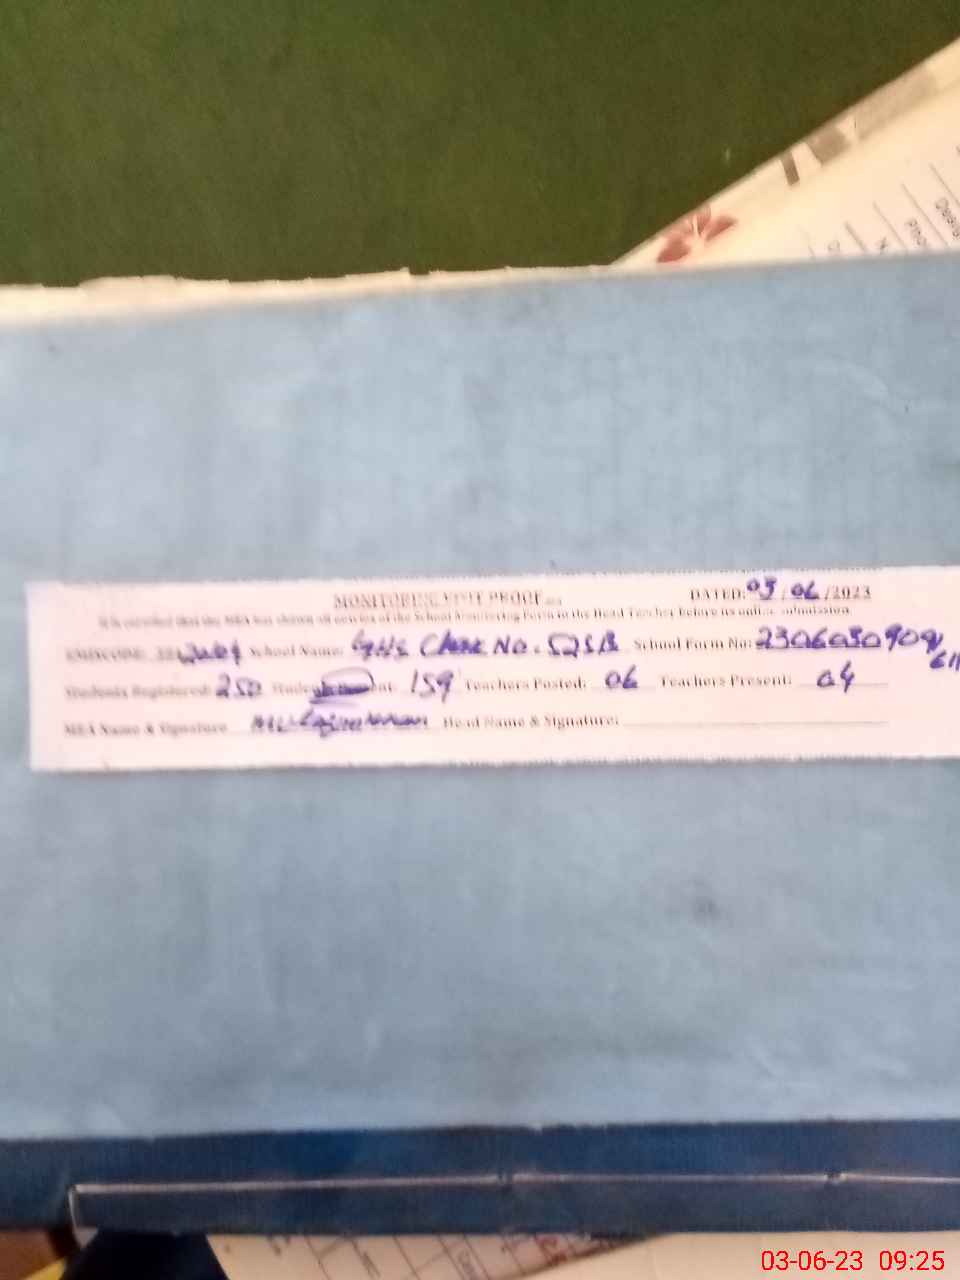 MONITORING VISIT PROOF DATED: 03/06/2023
It is certified that the MEA has shown all entries of the School Monitoring Form to the Head Teacher before its online submission.
School Name: GHS Chak No. 52SB School Form No: 2306030909
611
Students Registered: 250 159 Teachers Posted: 06 Teachers Present: 04
MEA Name & Signature Head Name & Signature:
03-06-23 09:25